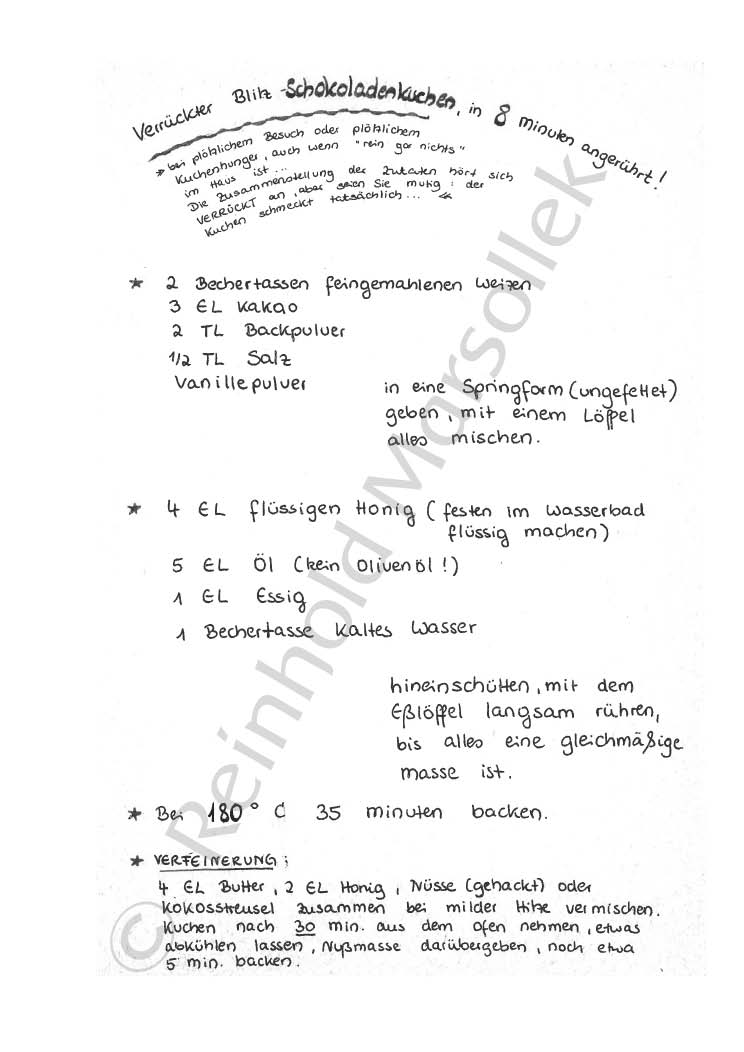 Verrückter Blitz-Schokoladenkuchen, in 8 minuten angerührt!
* bei plötzlichem Besuch oder plötzlichem
Kuchenhunger, auch wenn "rein gar nichts"
im Haus ist...
Die Zusammenstellung der Zutaten hört sich
VERRÜCKT an, aber seien Sie mutig: der
Kuchen schmeckt tatsächlich...
* 2 Bechertassen feingemahlenen Weizen
3 EL Kakao
2 TL Backpulver
1/2 TL Salz
Vanillepulver
in eine Springform (ungefettet)
geben, mit einem Löffel
alles mischen.
* 4 EL flüssigen Honig (festen im Wasserbad
flüssig machen)
5 EL Öl (kein Olivenöl!)
1 EL Essig
1 Bechertasse kaltes Wasser
hineinschütten, mit dem
Eßlöffel langsam rühren,
bis alles eine gleichmäßige
masse ist.
* Bei 180° C 35 minuten backen.
* VERFEINERUNG:
4 EL Butter, 2 EL Honig, Nüsse (gehackt) oder
Kokosstreusel zusammen bei milder Hitze vermischen.
Kuchen nach 30 min. aus dem Ofen nehmen, etwas
abkühlen lassen, Nußmasse darübergeben, noch etwa
5 min. backen.
© Reinhold Marsollek